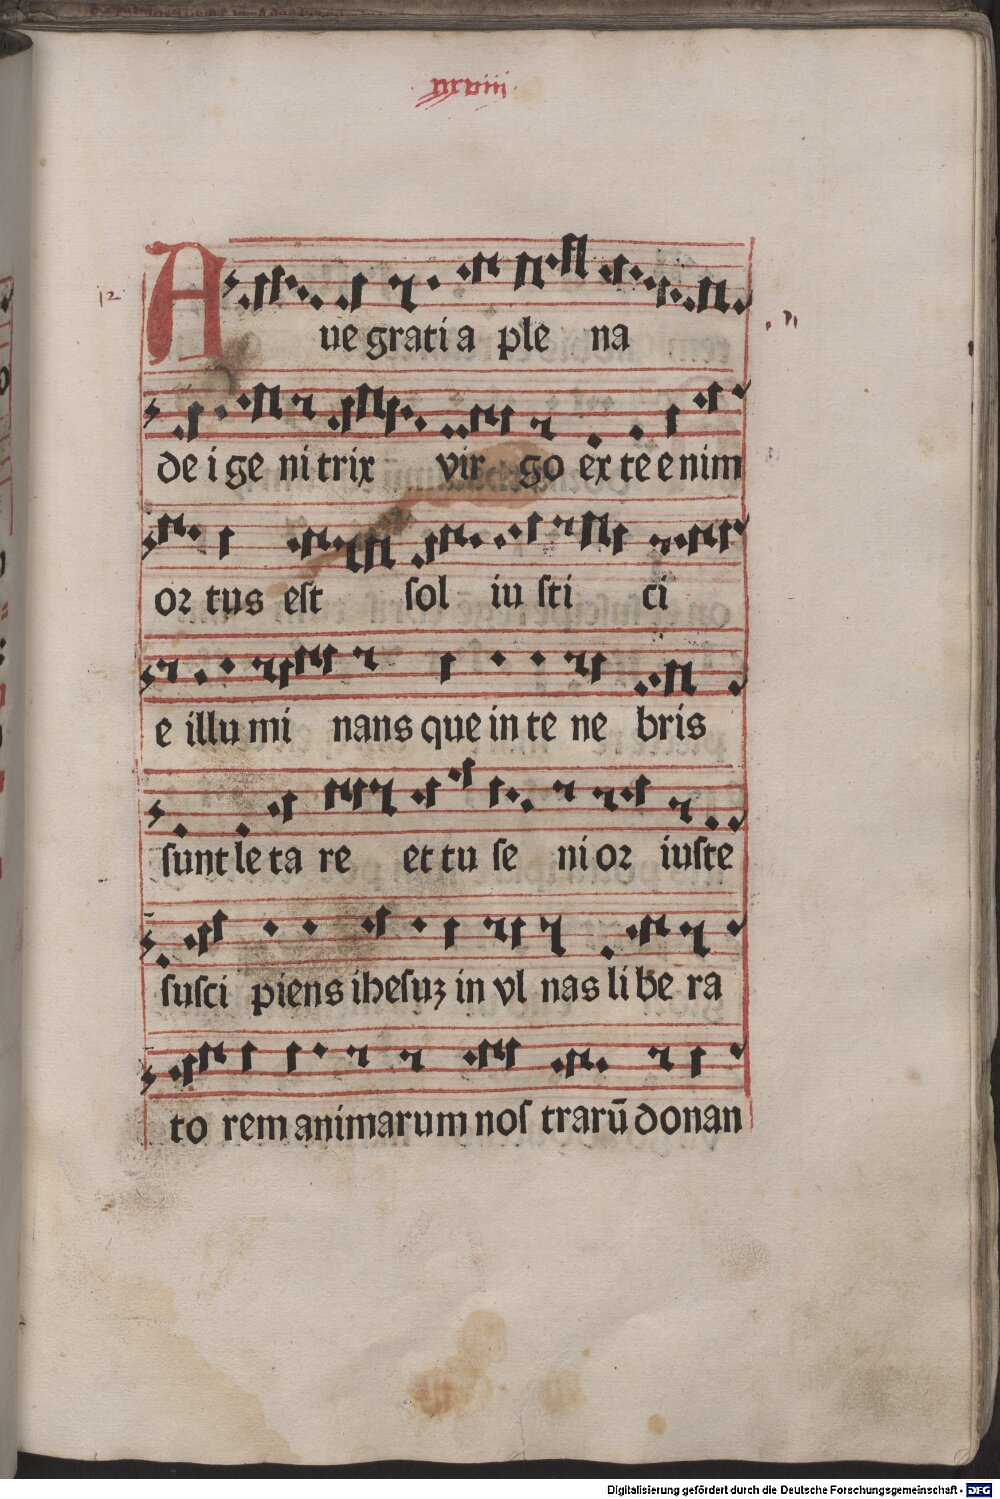 Aue grati a ple na
de i ge ni trix vir go ex te e nim
or tus est sol iu sti ci
e illu mi nans que in te ne bris
sunt le ta re et tu se ni or iuste
susci piens ihesuz in vl nas li be ra
to rem animarum nos trarū donan
Digitalisierung gefördert durch die Deutsche Forschungsgemeinschaft - DFG